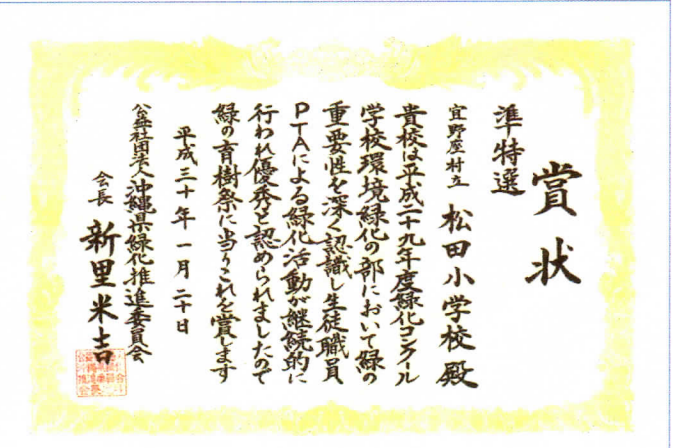 賞状
準特選
宜野座村立 松田小学校殿
貴校は平成二十九年度緑化コンクール
学校環境緑化の部において緑の
重要性を深く認識し生徒職員
PTAによる緑化活動が継続的に
行われ優秀と認められましたので
緑の育樹祭に当りこれを賞します
平成三十年一月二十日
公益社団法人沖縄県緑化推進委員会
会長 新里米吉